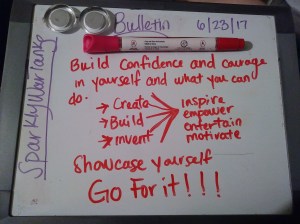 Bulletin 6/23/17
Build confidence and courage
in yourself and what you can
do.
→ Create
→ Build
→ Invent
inspire
empower
entertain
motivate
Showcase yourself
Go For it!!!